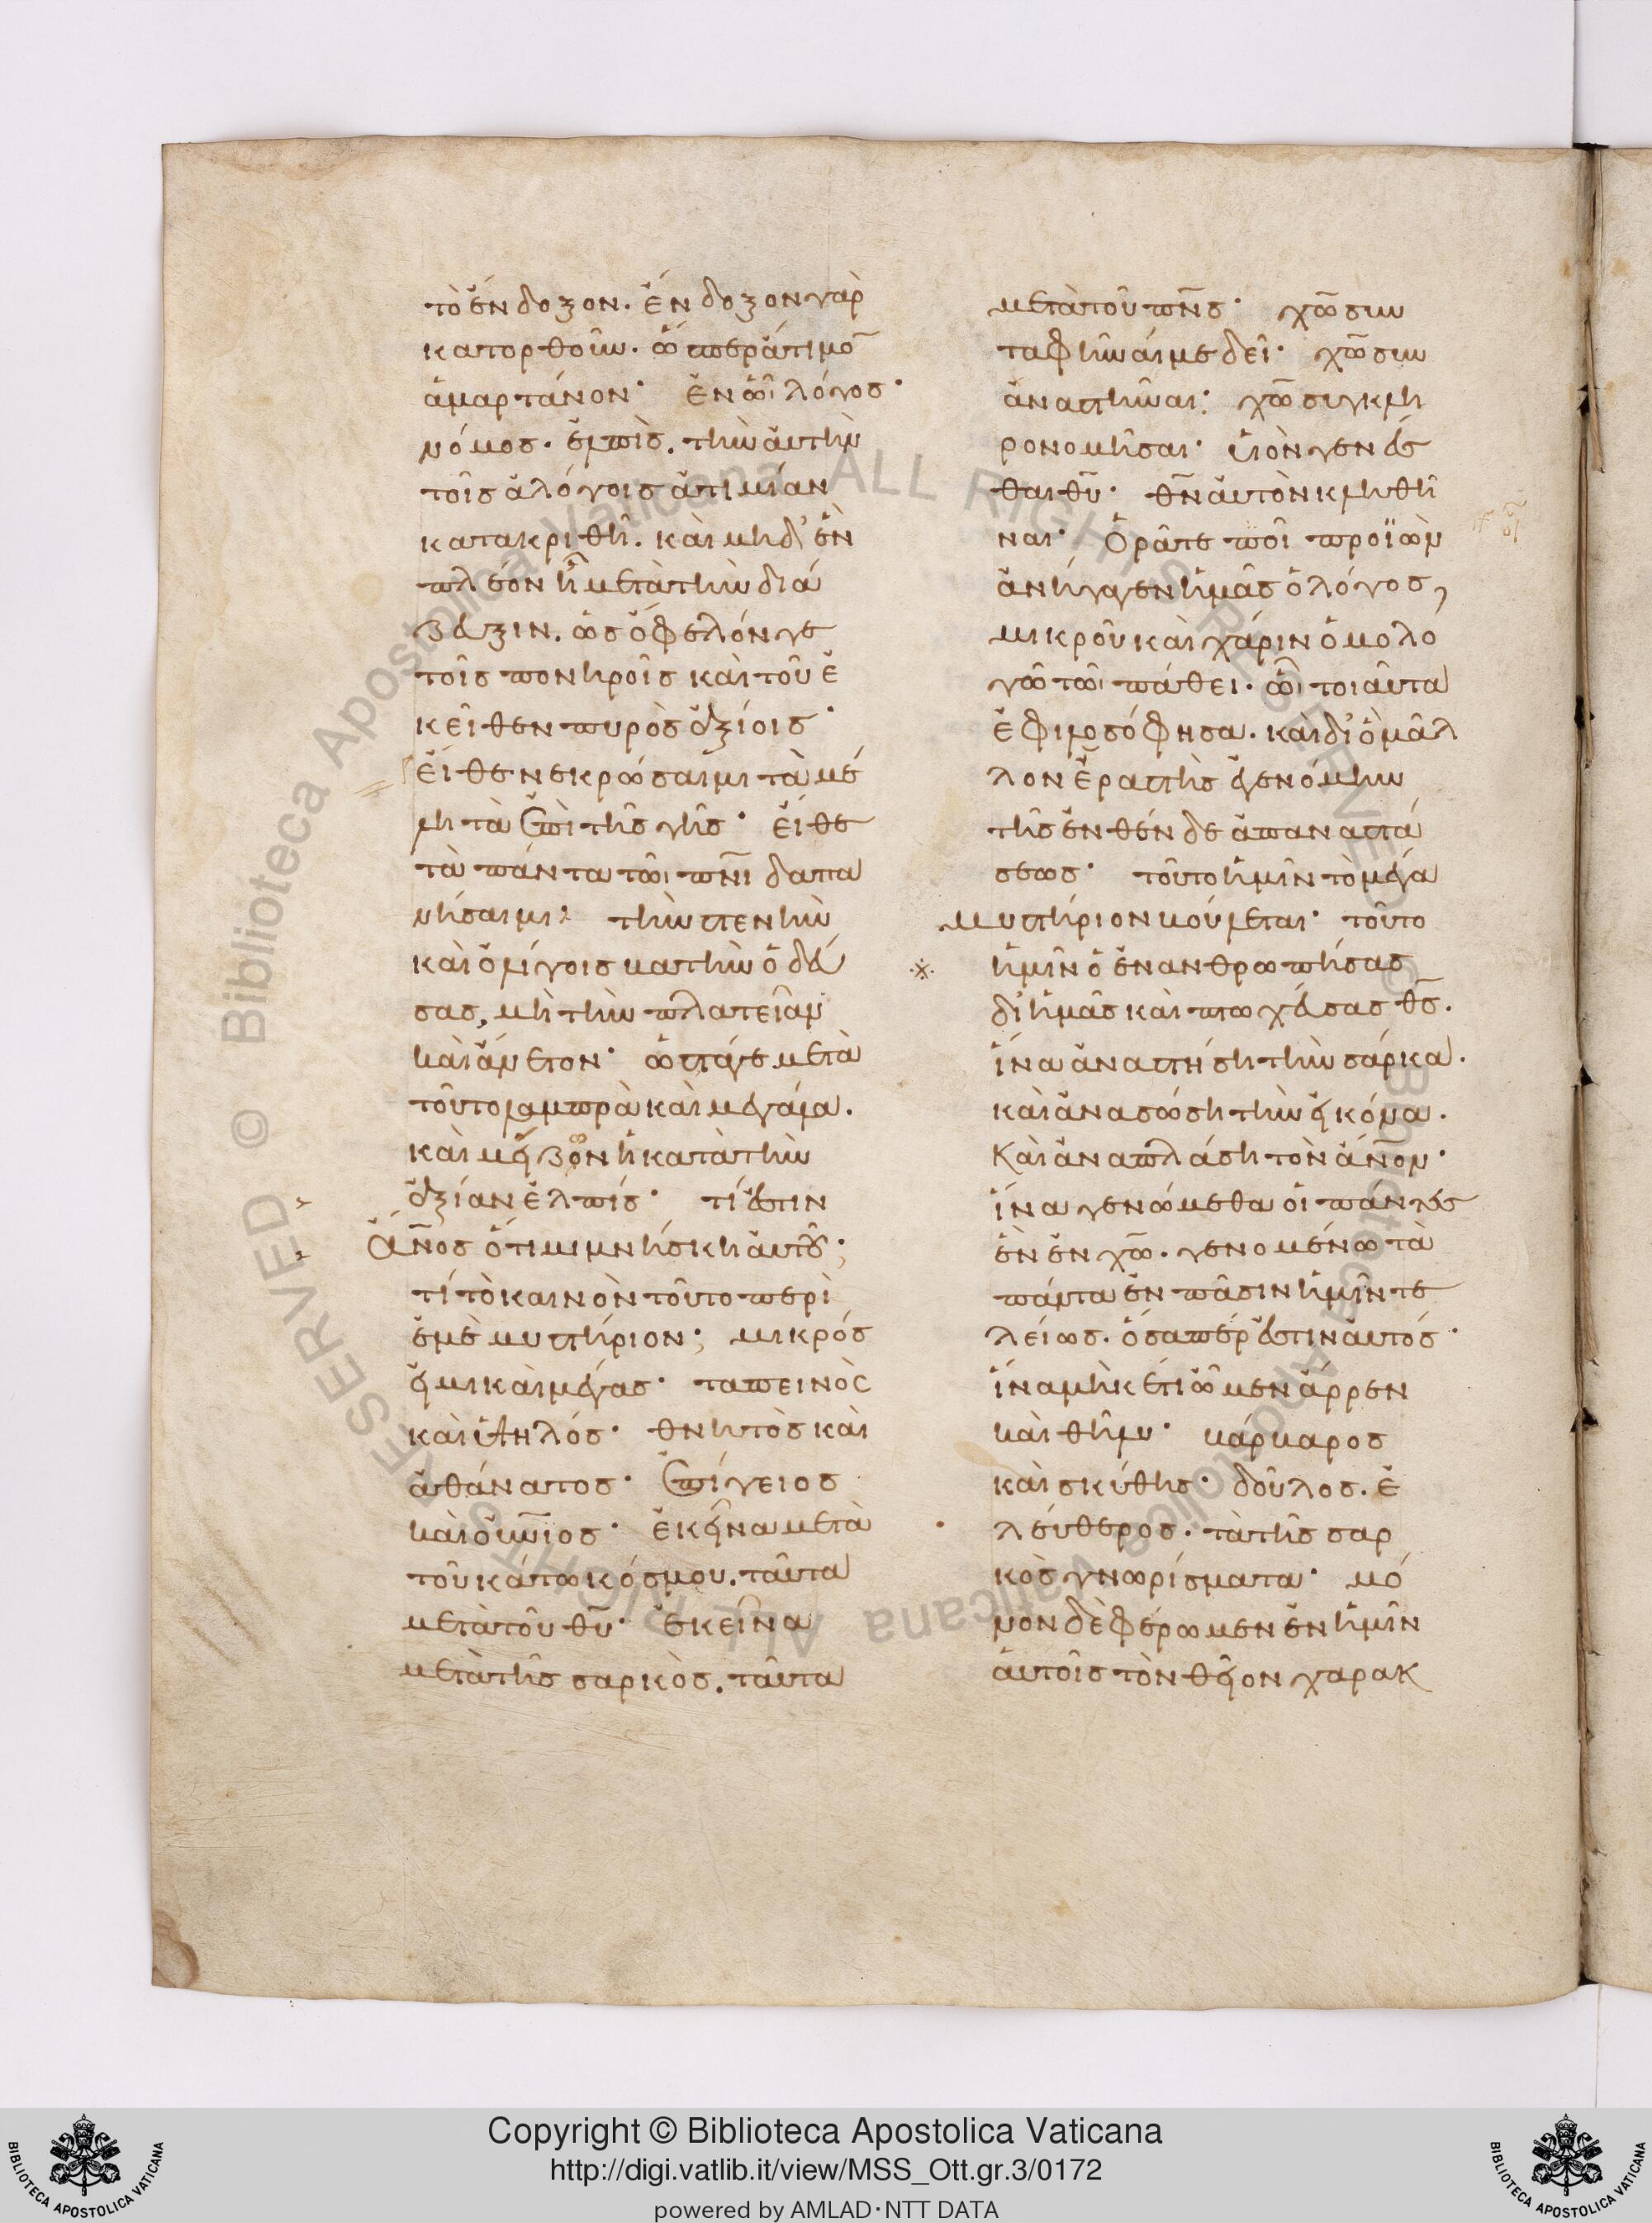 τὸ ἔνδοξον. ἔνδοξον γὰρ
κατορθοῦν. ὥσπερ ἄτιμο̅
ἁμαρτάνον· ἐν ὧι λόγος·
νόμος. ἐλπὶς. τὴν ἀυτὴν
τοῖς ἀλόγοις ἀτιμίαν
κατακριθῆ. καὶ μηδ' ἐν
πλέον ἦ μετὰ τὴν διά
ζευξιν. ὡς ὄφελόν γε
τοῖς πονηροῖς καὶ τοῦ ἐ
κεῖθεν πυρὸς ἀξίοις·
εἴθε νεκρώσαιμι τὰ μέ
λη τὰ ἐπὶ τῆς γῆς· εἴθε
τὰ πάντα τῶι πν̅ι δαπα
νήσαιμι· τὴν στενὴν
καὶ ὀλίγοις βατὴν ὁδεύ
σας, μὴ τὴν πλατεῖαν
καὶ ἄνετον· ὡς τάγε μετὰ
τοῦτο λαμπρὰ καὶ μεγάλα.
καὶ μεῖζον ἢ κατὰ τὴν
ἀξίαν ἐλπίς· τί ἐστιν
ἄν̅ος ὅτι μιμνήσκη ἀυτοῦ;
τί τὸ καινὸν τοῦτο περὶ
ἐμὲ μυστήριον; μικρός
εἰμι καὶ μέγας· ταπεινὸς
καὶ ὑψηλός· θνητὸς καὶ
ἀθάνατος· ἐπίγειος
καὶ οὐν̅ιος· ἐκεῖνα μετὰ
τοῦ κάτω κόσμου. ταῦτα
μετὰ τοῦ θυ̅· ἐκεῖνα
μετὰ τῆς σαρκὸς. ταῦτα
μετὰ τοῦ πν̅ς· χω̅ συν
ταφῆναί με δεῖ· χω̅ συν
ἀναστῆναι· χω̅ συγκλη
ρονομῆσαι· υἱὸν γενέσ
θαι θυ̅· θν̅ ἀυτὸν κληθῆ
ναι· Ὁρᾶτε ποῖ προϊὼν
ἀνήγαγεν ἡμᾶς ὁ λόγος,
μικροῦ καὶ χάριν ὁμολο
γῶ τῶι πάθει. ὧι τοιαῦτα
ἐφιλοσόφησα. καὶ δι' ὃ μᾶλ
λον ἐραστὴς ἐγενόμην
τῆς ἐνθένδε ἀπαναστά
σεως· τοῦτο ἡμῖν τὸ μέγα
μυστήριον βούλεται· τοῦτο
ἡμῖν ὁ ἐνανθρωπήσας
δι' ἡμᾶς καὶ πτωχεύσας θς̅.
ἵνα ἀναστήση τὴν σάρκα.
καὶ ἀνασώση τὴν εἰκόνα.
Καὶ ἀναπλάση τὸν ἄν̅ον·
ἵνα γενώμεθα οἱ πάντες
ἓν ἐν χω̅. γενομένω τὰ
πάντα ἐν πᾶσιν ἡμῖν τε
λείως. ὅσα πέρ ἐστιν ἀυτός·
ἵνα μηκέτι ὦμεν ἄρρεν
καὶ θῆλυ· βάρβαρος
καὶ σκύθης· δοῦλος. ἐ
λεύθερος. τὰ τῆς σαρ
κὸς γνωρίσματα· μό
νον δὲ φέρωμεν ἐν ἡμῖν
ἀυτοῖς τὸν θεῖον χαρακ
Copyright © Biblioteca Apostolica Vaticana
http://digi.vatlib.it/view/MSS_Ott.gr.3/0172
powered by AMLAD·NTT DATA